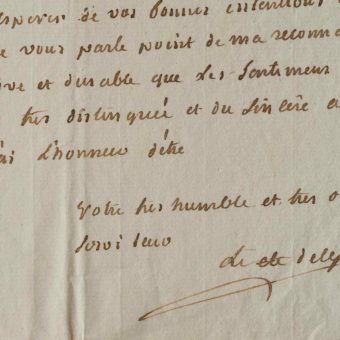 esperer de vos bonnes intentions
vous parle point de ma reconno
ve et durable que les sentimens
tres distingueé et du sincère a
ai l'honneur d'être
votre tres humble et tres o
servi teur
Le cte de